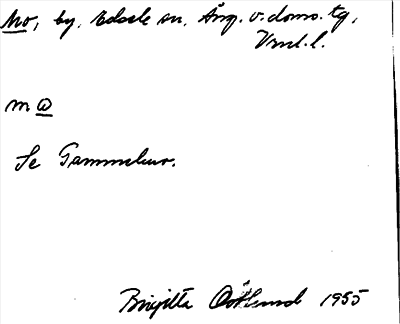 Mo, by, Edsele sn, Ång. v. doms. tg,
Vrml. l.
m @
Se Gammelmo.
Birgitta Östlund 1955